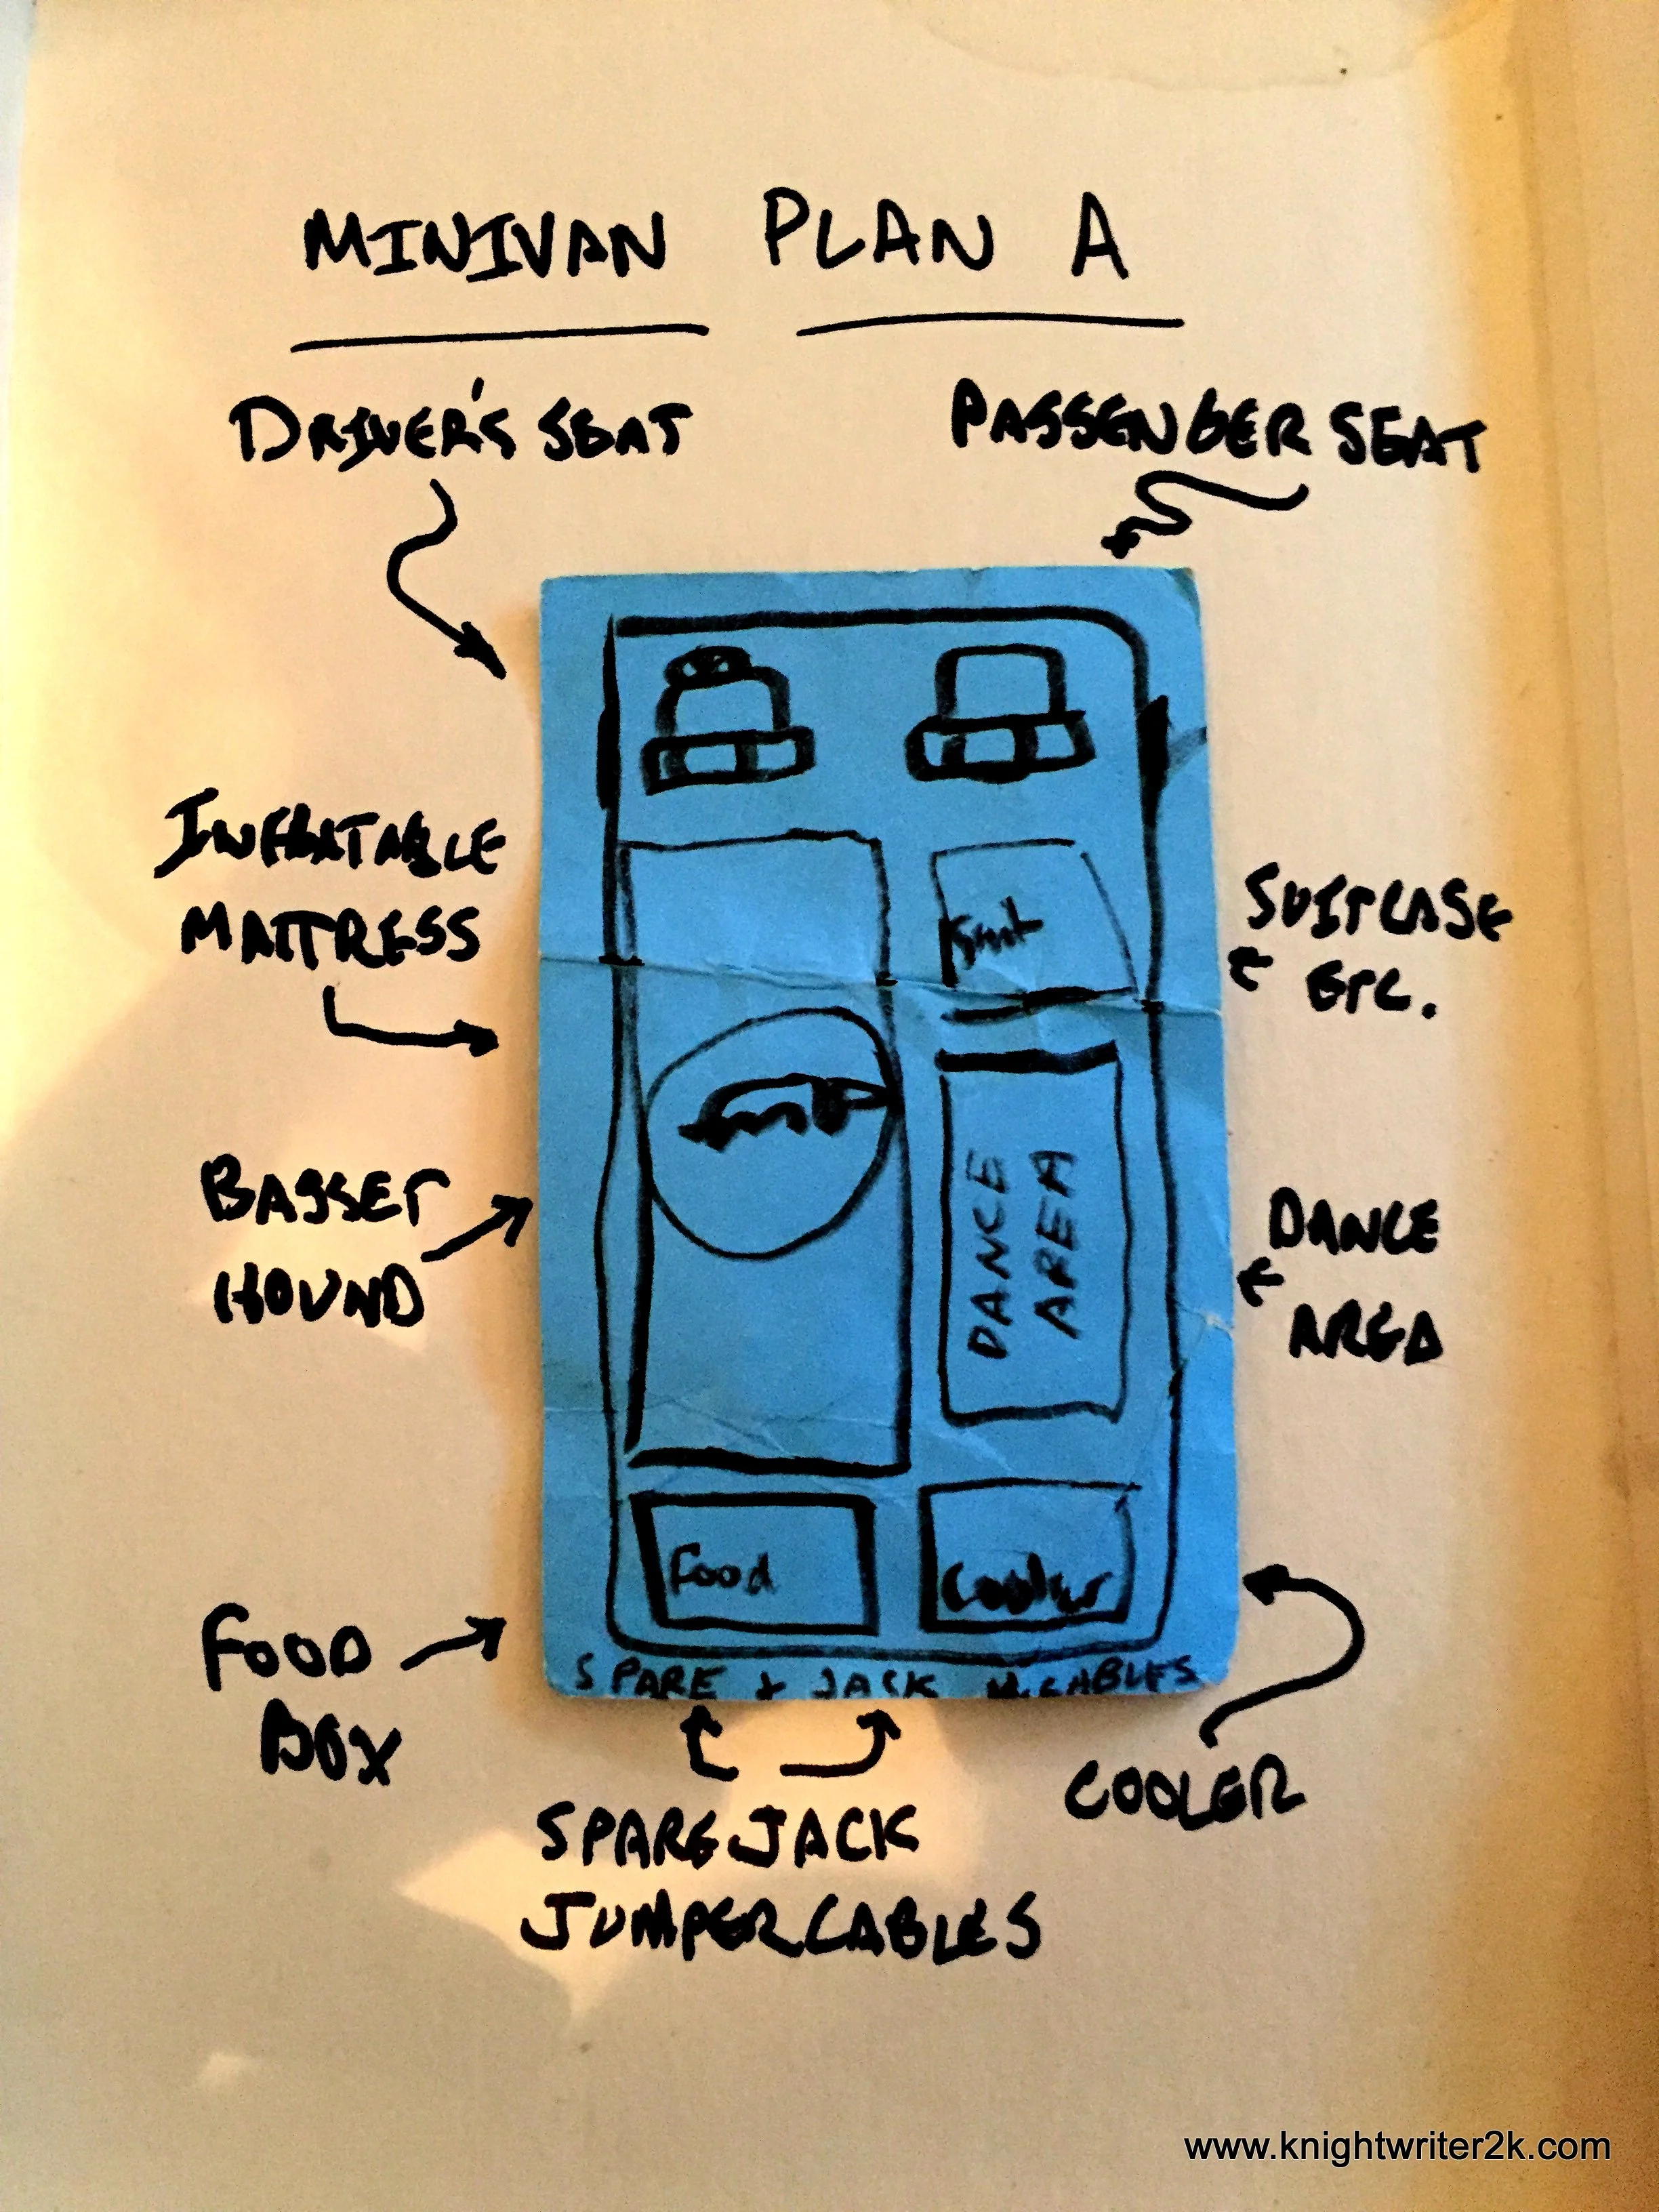 MINIVAN PLAN A
DRIVER'S SEAT
PASSENGER SEAT
INFLATABLE
MATTRESS
SUITCASE
ETC.
BASSET
HOUND
DANCE
AREA
DANCE
AREA
Food
Cooler
FOOD
BOX
SPARE & JACK CABLES
SPARE JACK
JUMPER CABLES
COOLER
www.knightwriter2k.com